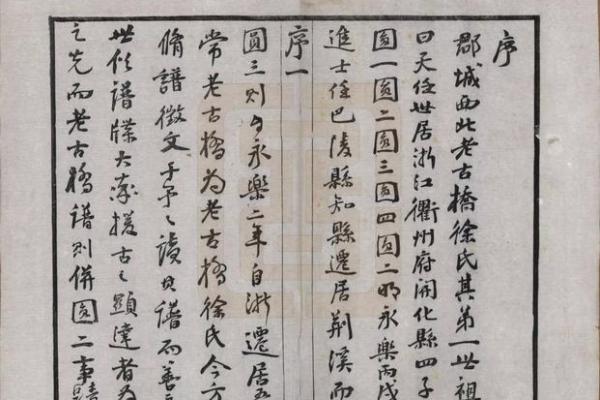 序
郡城西北老古橋徐氏其第一世祖
曰天任世居浙江衢州府開化縣四子
圓一圓二圓三圓四圓二明永樂丙戌
進士任巴陵縣知縣遷居荆溪而
序一
圓三則於永樂二年自浙遷居
常老古橋為老古橋徐氏今方
脩譜徵文于予予讀其譜而善
世俗譜牒大率援古之顯達者為
之先而老古橋譜則併圓二事